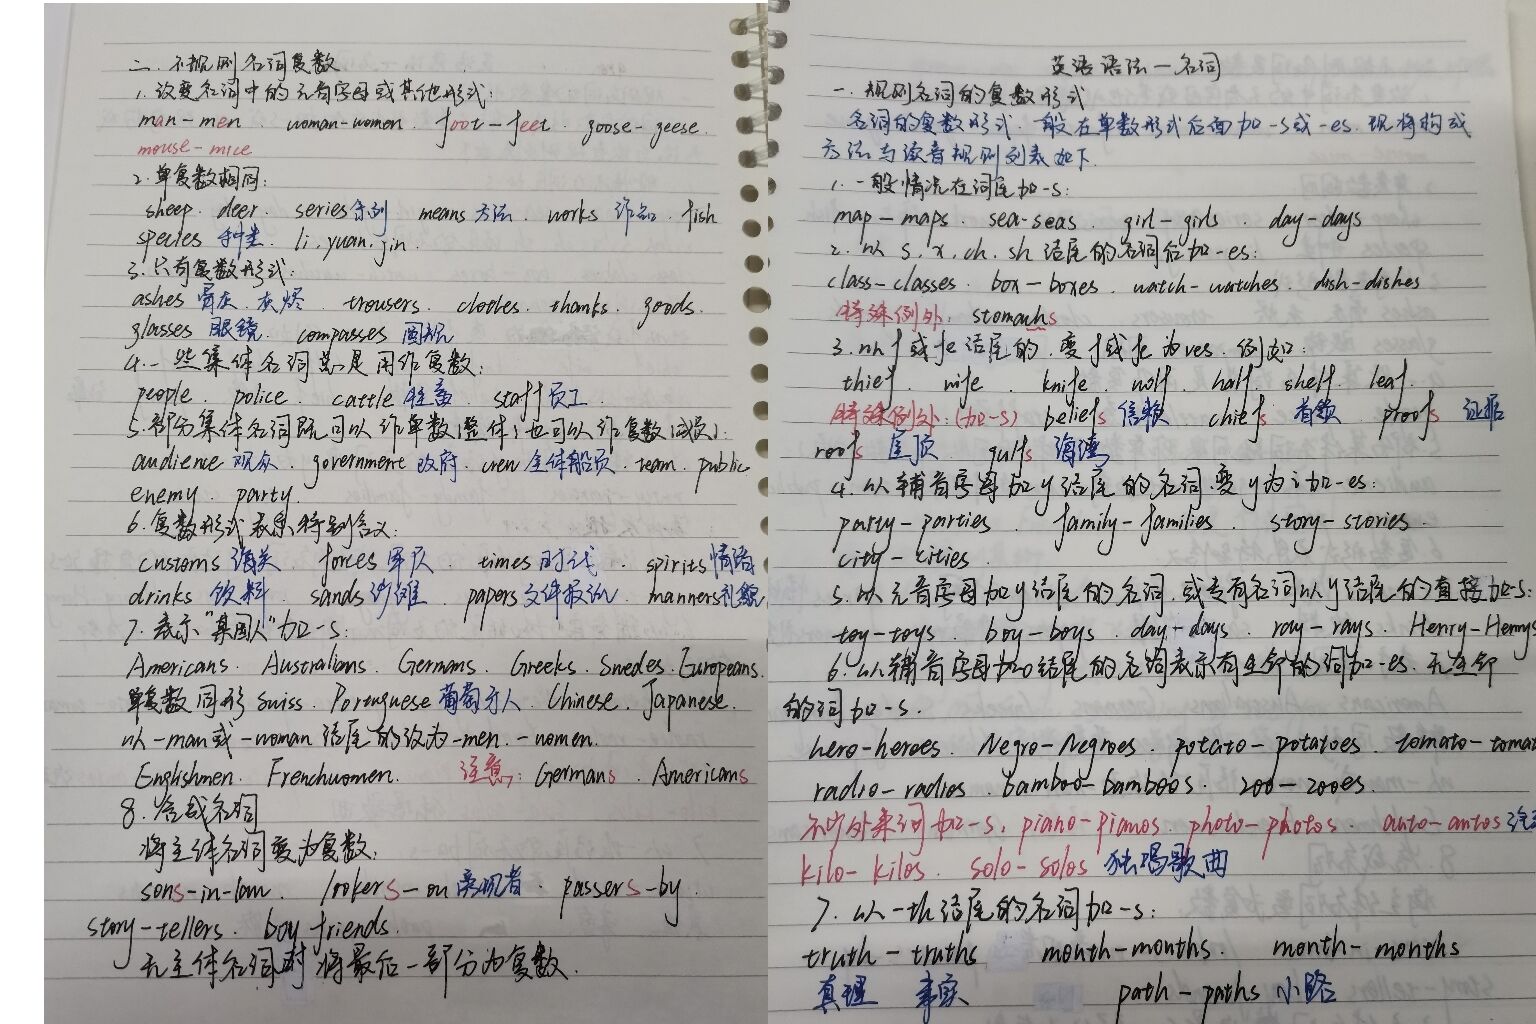 二.不规则名词复数
1.改变名词中的元音字母或其他形式:
man-men. woman-women. foot-feet. goose-geese.
mouse-mice
2.单复数相同:
sheep. deer. series系列 means方法. works 作品. fish
species 种类. li.yuan.jin.
3.只有复数形式:
ashes 骨灰.灰烬. trousers. clothes. thanks. goods.
glasses 眼镜. compasses 圆规
4.一些集体名词总是用作复数:
people. police. cattle牲畜. staff员工.
5.部分集体名词既可以作单数(整体)也可以作复数(成员):
audience 观众. government 政府. crew 全体船员. team. public
enemy. party.
6.复数形式表示特别含义:
customs 海关 forces军队. times时代. spirits情绪
drinks 饮料. sands沙滩. papers文件报纸. manners礼貌
7.表示"某国人"加-s:
Americans. Australians. Germans. Greeks. Swedes. Europeans.
单复数同形 Swiss. Portuguese葡萄牙人. Chinese. Japanese.
以-man或-woman结尾的改为-men.-women.
Englishmen. Frenchwomen. 注意: Germans. Americans
8.合成名词
将主体名词变为复数:
sons-in-law. lookers-on旁观者. passers-by
story-tellers. boy friends.
无主体名词时将最后一部分为复数.
英语语法-名词
一.规则名词的复数形式
名词的复数形式.一般在单数形式后面加-s或-es.现将构成
方法与读音规则列表如下.
1.一般情况在词尾加-s:
map-maps. sea-seas. girl-girls. day-days
2.以s.x.ch.sh结尾的名词后加-es:
class-classes. box-boxes. watch-watches. dish-dishes
特殊例外: stomachs
3.以f或fe结尾的.变f或fe为ves.例如:
thief. wife. knife. wolf. half. shelf. leaf.
特殊例外:(加-s) beliefs信赖 chiefs 首领 proofs 证据
roofs 屋顶 gulfs 海湾
4.以辅音字母加y结尾的名词.变y为i加-es:
party-parties. family-families. story-stories.
city-cities.
5.以元音字母加y结尾的名词.或专有名词以y结尾的直接加-s:
toy-toys. boy-boys. day-days. ray-rays. Henry-Henrys
6.以辅音字母加o结尾的名词表示有生命的词加-es.无生命
的词加-s.
hero-heroes. Negro-Negroes. potato-potatoes. tomato-tomat
radio-radios. bamboo-bamboos. zoo-zooes.
不少外来词加-s. piano-pianos. photo-photos. auto-autos
kilo-kilos. solo-solos 独唱歌曲
7.以-th结尾的名词加-s:
truth-truths month-months. month-months
真理 事实 path-paths 小路